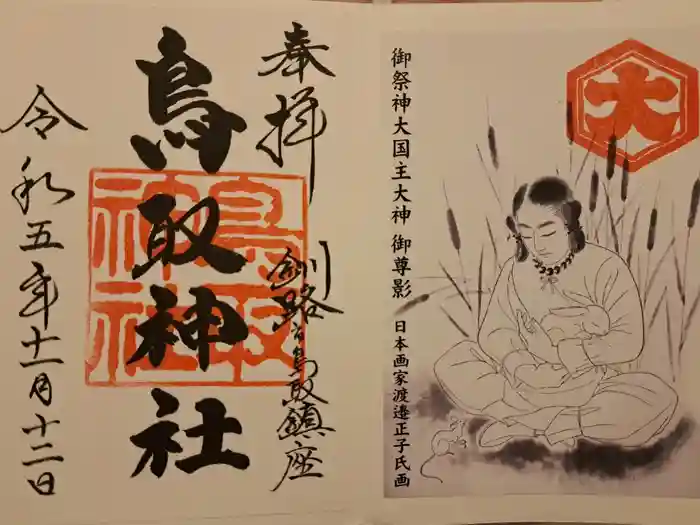 奉拝
釧路市鳥取鎮座
鳥取神社
鳥取
神社
令和五年十一月十二日
大
御祭神大国主大神 御尊影
日本画家渡邉正子氏画